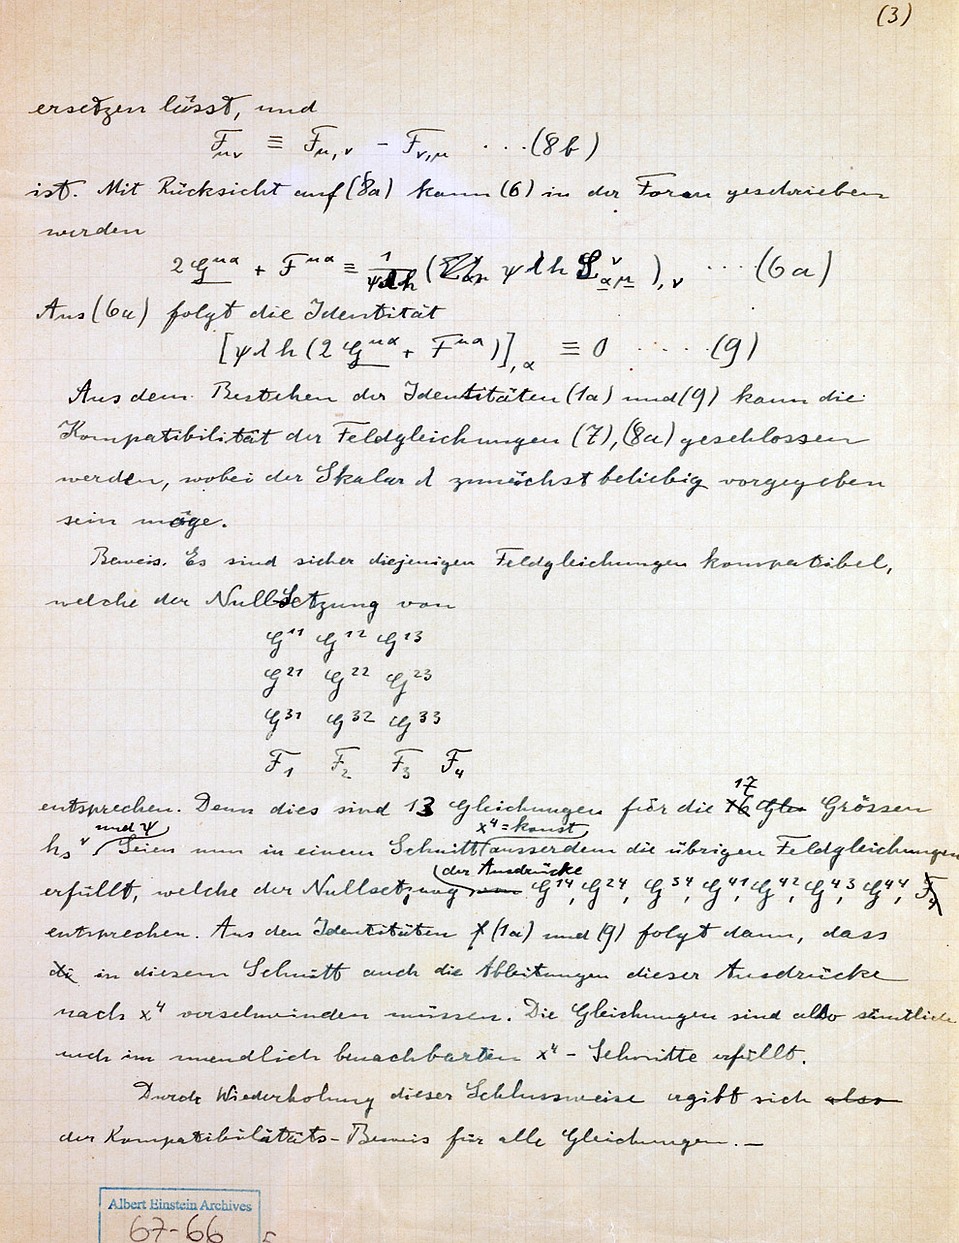 (3)
ersetzen lässt, und
F_μν ≡ F_μ,ν - F_ν,μ ...(8b)
ist. Mit Rücksicht auf (8a) kann (6) in der Form geschrieben
werden
2 G^μα + F^μα ≡ 1/ψλh ( ψ λ h L_αμ^ν ),ν ...(6a)
Aus (6a) folgt die Identität
[ψ λ h (2 G^μα + F^μα)],α ≡ 0 ....(9)
Aus dem Bestehen der Identitäten (1a) und (9) kann die
Kompatibilität der Feldgleichungen (7), (8a) geschlossen
werden, wobei der Skalar λ zunächst beliebig vorgegeben
sein möge.
Beweis. Es sind sicher diejenigen Feldgleichungen kompatibel,
welche der Nullsetzung von
G^11 G^12 G^13
G^21 G^22 G^23
G^31 G^32 G^33
F_1 F_2 F_3 F_4
17
entsprechen. Denn dies sind 13 Gleichungen für die 16 Grössen
und ψ x^4 = konst
h_s^ν. Seien nun in einem Schnitt ausserdem die übrigen Feldgleichungen
der Ausdrücke
erfüllt, welche der Nullsetzung von G^14, G^24, G^34, G^41, G^42, G^43, G^44, F_4
entsprechen. Aus den Identitäten (1a) und (9) folgt dann, dass
di in diesem Schnitt auch die Ableitungen dieser Ausdrücke
nach x^4 verschwinden müssen. Die Gleichungen sind also sämtlich
auch im unendlich benachbarten x^4 - Schnitte erfüllt.
Durch Wiederholung dieser Schlussweise ergibt sich also
der Kompatibilitäts-Beweis für alle Gleichungen. —
Albert Einstein Archives
67-66